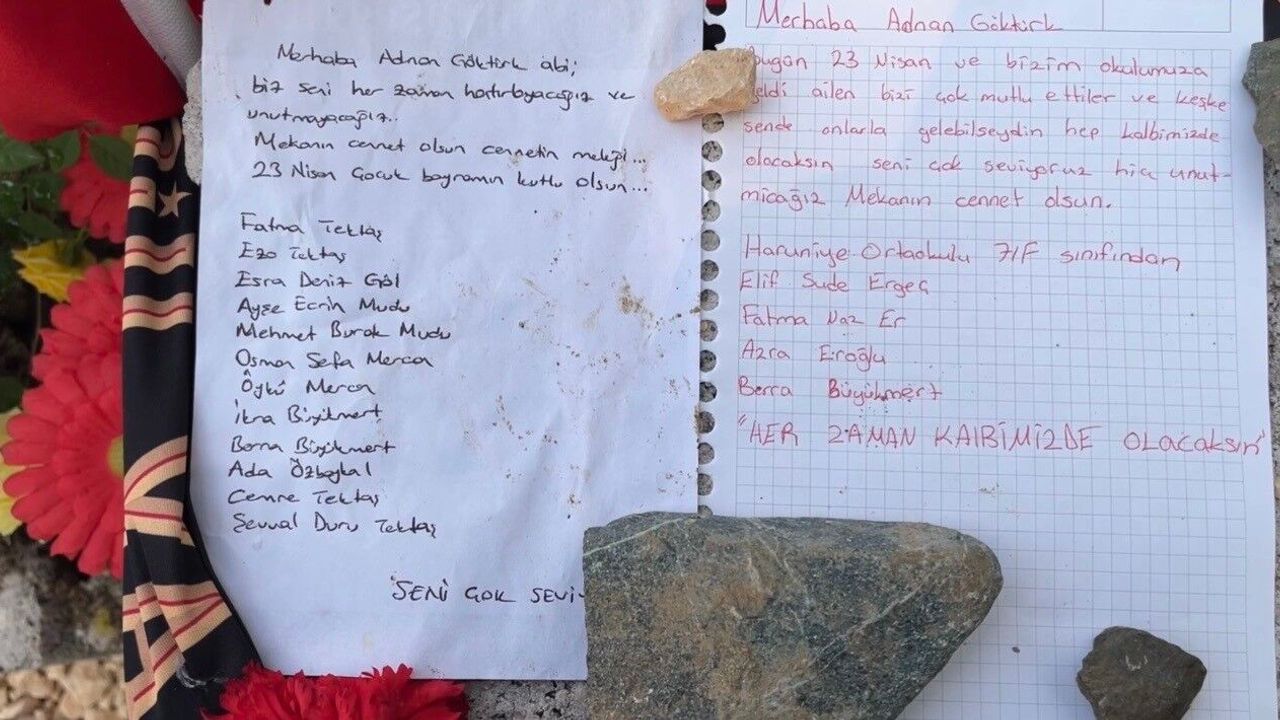 Merhaba Adnan Göktürk abi;
biz seni her zaman hatırlayacağız ve
unutmayacağız..
Mekanın cennet olsun cennetin meleği...
23 Nisan Çocuk bayramın kutlu olsun...
Fatma Tektaş
Ezo Tektaş
Esra Deniz Göl
Ayşe Ecrin Mudu
Mehmet Burak Mudu
Osman Sefa Mercan
Öykü Mercan
İkra Biyikmert
Berra Biyikmert
Ada Özbaykal
Cemre Tektaş
Sevval Duru Tektaş
SENİ ÇOK SEVİ
Merhaba Adnan Göktürk
Bugün 23 Nisan ve bizim okulumuza
geldi ailen bizi çok mutlu ettiler ve keşke
sende onlarla gelebilseydin hep kalbimizde
olacaksın seni çok seviyoruz hiç unut-
micağız Mekanın cennet olsun.
Haruniye Ortaokulu 7/F sınıfından
Elif Sude Ergeç
Fatma Naz Er
Azra Eroğlu
Berra Büyükmert
"HER ZAMAN KALBİMİZDE OLACAKSIN"